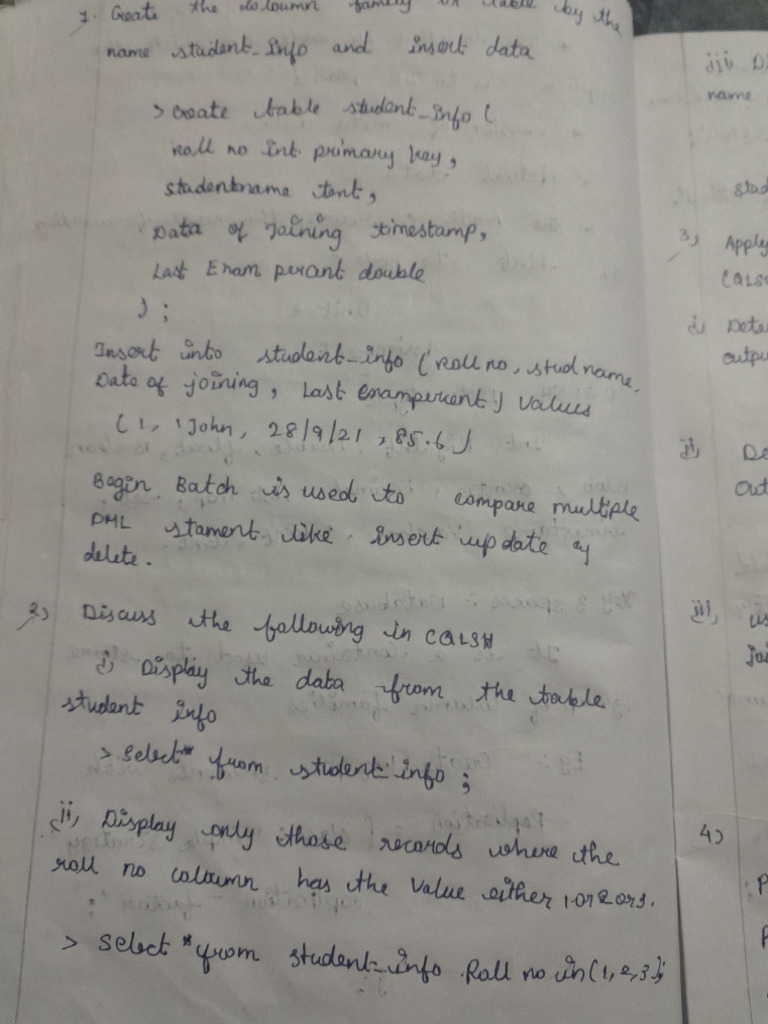 1. Create the coloumn family or table by the
name student_Info and insert data
> create table student_info (
Roll no int primary key,
studentname text,
Data of Joining timestamp,
Last Exam percant double
) ;
Insert into student_info (Roll no, stud name,
Date of joining, Last exampercent) values
(1, 'John, 28/9/21, 85.6)
Begin Batch is used to compare multiple
DML stament like insert update or
delete.
2) Discuss the following in CQLSH
i) Display the data from the table
student info
> select* from student info ;
ii, Display only those records where the
roll no coloumn has the value either 1 or 2 or 3.
> select *from student_info Roll no in (1,2,3);
iii)
name
stud
3, Apply
CQLSH
i)
outpu
ii)
out
iii,
us
joi
4)
P
P